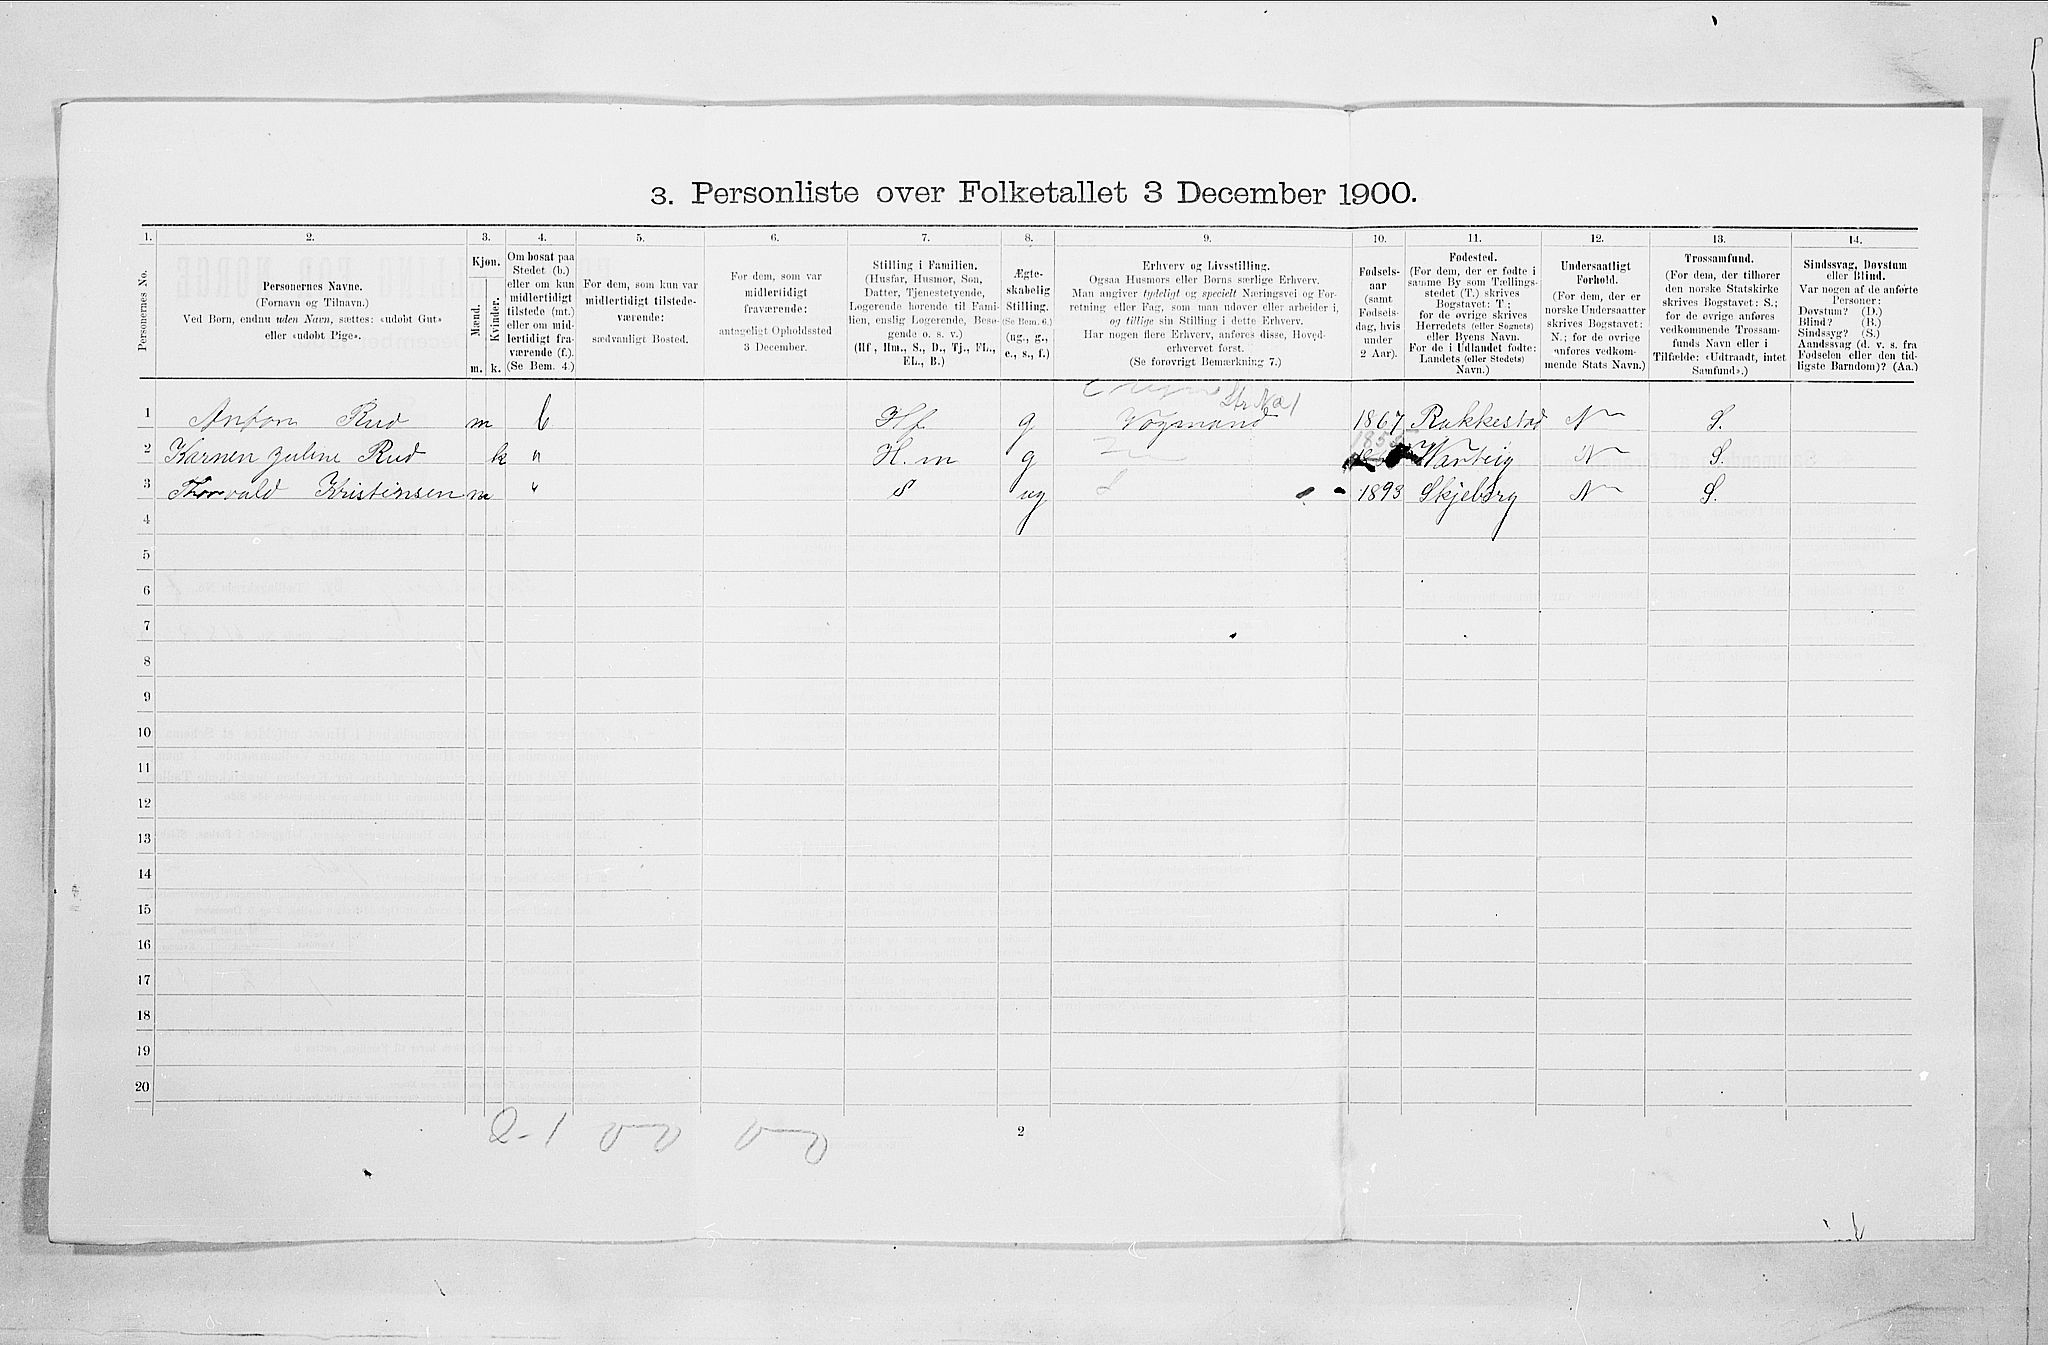 3. Personliste over Folketallet 3 December 1900.
1. 2. 3. 4. 5. 6. 7. 8. 9. 10. 11. 12. 13. 14.
Personernes No.
Personernes Navne.
(Fornavn og Tilnavn.)
Ved Børn, endnu uden Navn, sættes: «udøbt Gut»
eller «udøbt Pige».
Kjøn.
Mænd.
Kvinder.
m. k.
Om bosat paa
Stedet (b.)
eller om kun
midlertidigt
tilstede (mt.)
eller om mid-
lertidigt fra-
værende (f.).
(Se Bem. 4.)
For dem, som kun var
midlertidigt tilstede-
værende:
sædvanligt Bosted.
For dem, som var
midlertidigt
fraværende:
antageligt Opholdssted
3 December.
Stilling i Familien.
(Husfar, Husmor, Søn,
Datter, Tjenestetyende,
Logerende hørende til Fami-
lien, enslig Logerende, Besø-
gende o. s. v.)
(Hf., Hm., S., D., Tj., FL.,
EL., B.)
Ægte-
skabelig
Stilling.
(Se Bem. 6.)
(ug., g.,
e., s., f.)
Erhverv og Livsstilling.
Ogsaa Husmors eller Børns særlige Erhverv.
Man angiver tydeligt og specielt Næringsvei og For-
retning eller Fag, som man udøver eller arbeider i,
og tillige sin Stilling i dette Erhverv.
Har nogen flere Erhverv, anføres disse, Hoved-
erhvervet først.
(Se forøvrigt Bemærkning 7.)
Fødsels-
aar
(samt
Fødsels-
dag, hvis
under
2 Aar).
Fødested.
(For dem, der er fødte i
samme By som Tællings-
stedet (T.) skrives
Bogstavet: T.;
for de øvrige skrives
Herredets (eller Sognets)
eller Byens Navn.
For de i Udlandet fødte:
Landets (eller Stedets)
Navn.)
Undersaatligt
Forhold.
(For dem, der er
norske Undersaatter
skrives Bogstavet:
N.; for de øvrige
anføres vedkom-
mende Stats Navn.)
Trossamfund.
(For dem, der tilhører
den norske Statskirke
skrives Bogstavet: S.;
for de øvrige anføres
vedkommende Trossam-
funds Navn eller i
Tilfælde: «Udtraadt, intet
Samfund».)
Sindssvag, Døvstum
eller Blind.
Var nogen af de anførte
Personer:
Døvstum? (D.)
Blind? (B.)
Sindssyg? (S.)
Aandssvag (d. v. s. fra
Fødselen eller den tid-
ligste Barndom)? (Aa.)
1 Anton Rud m b Hf g Vogmand 1867 Rakkestad N S.
2 Karnen Juline Rud k " H.m g 185 Varteig N S.
3 Thorvald Kristensen m " S ug 1893 Skjeberg N S.
4
5
6
7
8
9
10
11
12
13
14
15
16
17
18
19
20
2-1
2